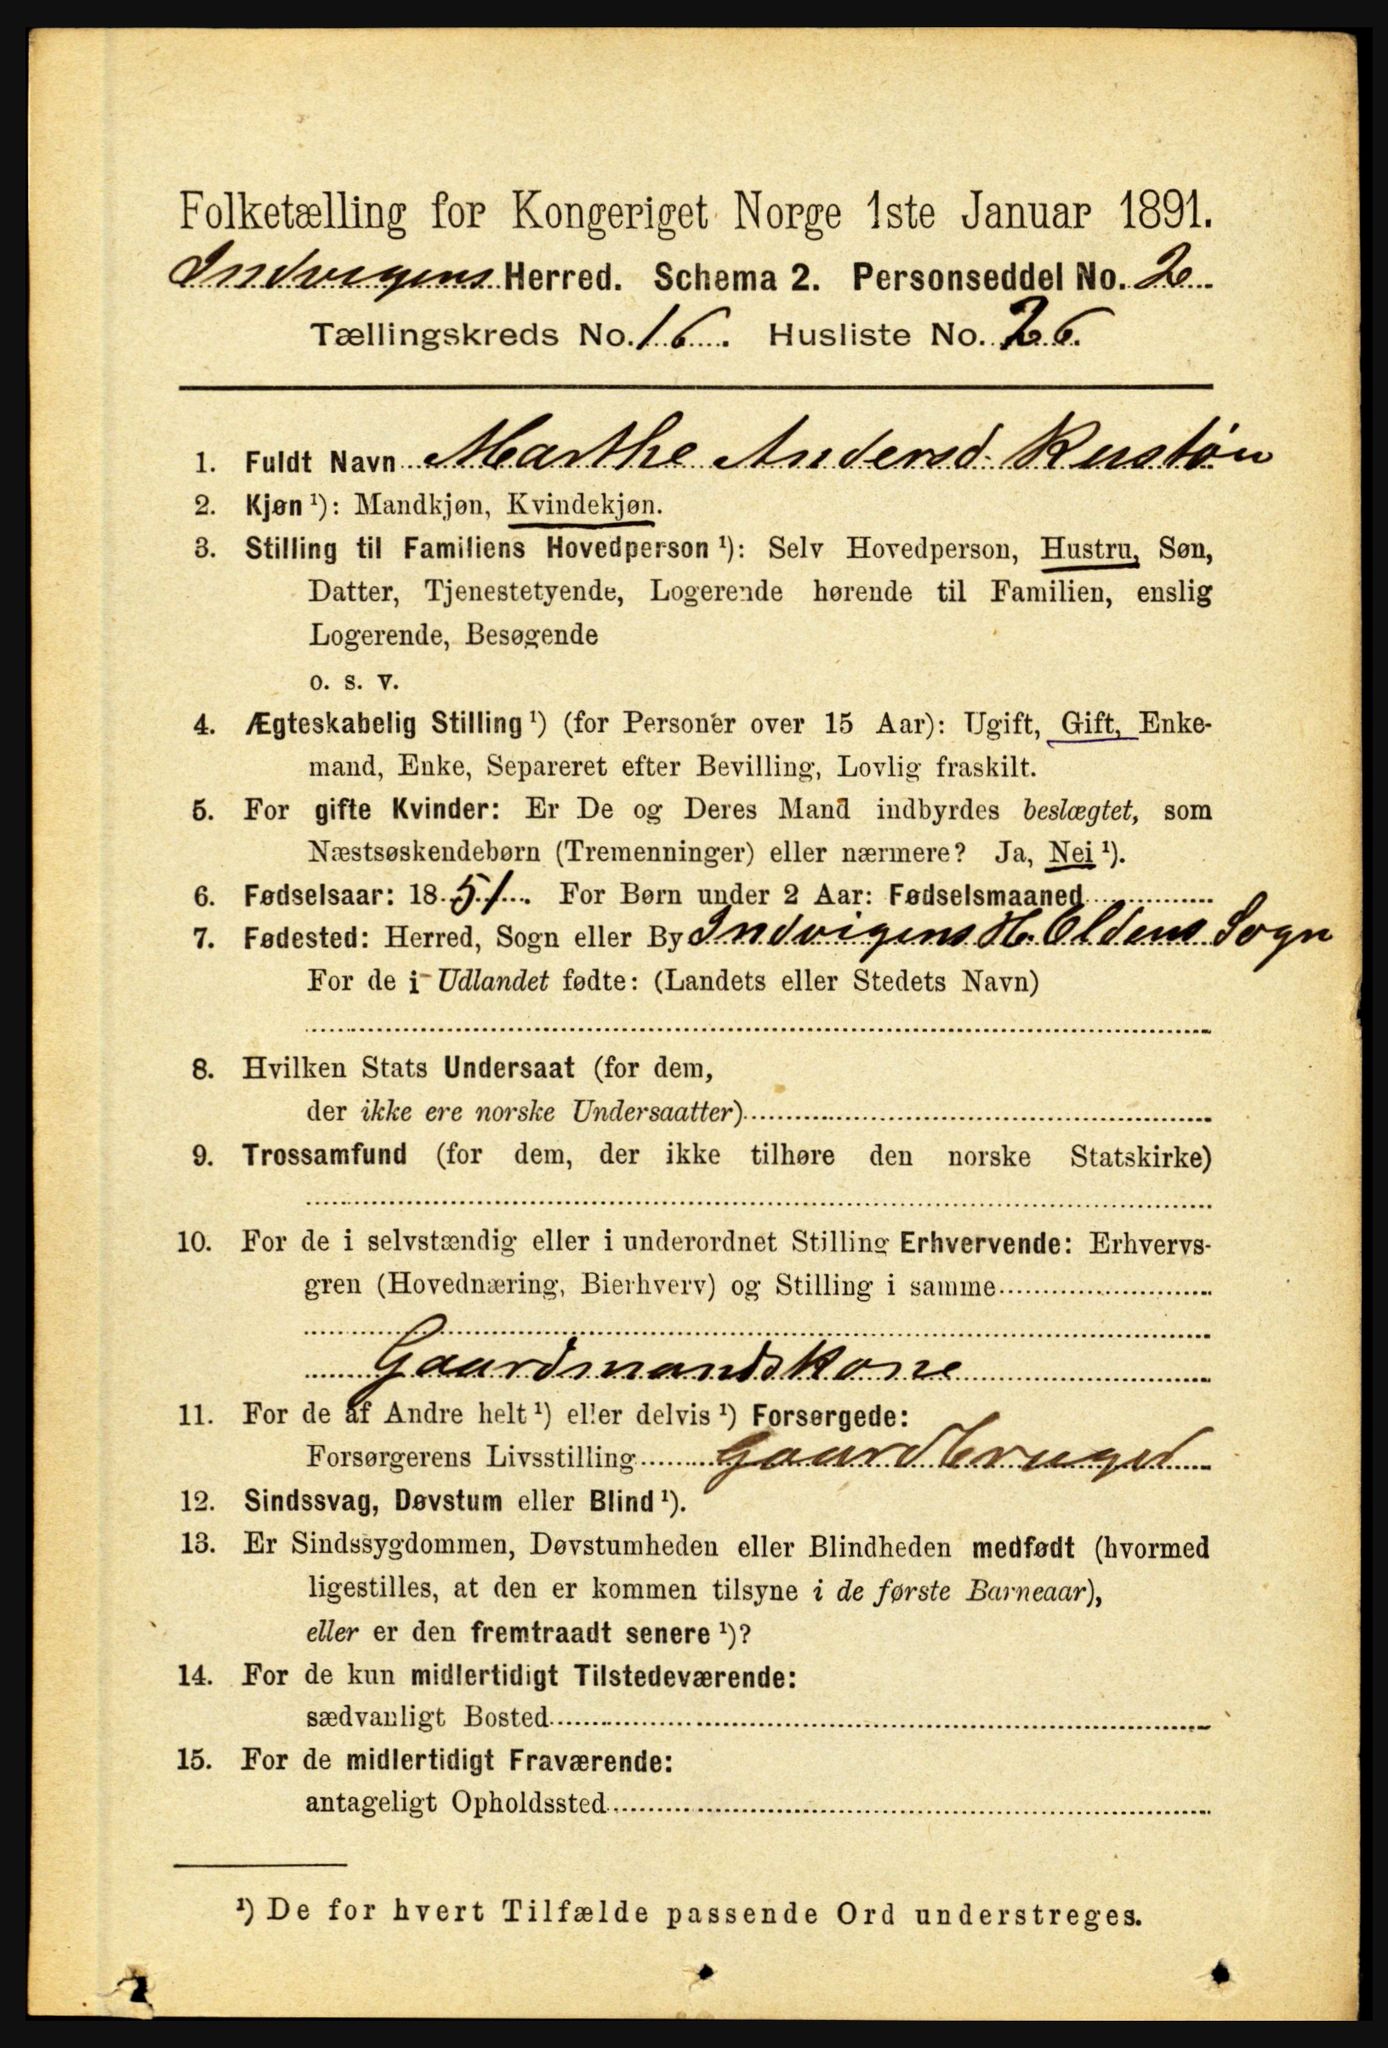 Folketælling for Kongeriget Norge 1ste Januar 1891.
Indvigens Herred. Schema 2. Personseddel No. 2
Tællingskreds No. 16. Husliste No. 26.
1. Fuldt Navn Marthe Andersd. Rustøn
2. Kjøn ¹): Mandkjøn, Kvindekjøn.
3. Stilling til Familiens Hovedperson ¹): Selv Hovedperson, Hustru, Søn,
Datter, Tjenestetyende, Logerende hørende til Familien, enslig
Logerende, Besøgende
o. s. v.
4. Ægteskabelig Stilling ¹) (for Personer over 15 Aar): Ugift, Gift, Enke-
mand, Enke, Separeret efter Bevilling, Lovlig fraskilt.
5. For gifte Kvinder: Er De og Deres Mand indbyrdes beslægtet, som
Næstsøskendebørn (Tremenninger) eller nærmere? Ja, Nei ¹).
6. Fødselsaar: 1851. For Børn under 2 Aar: Fødselsmaaned
7. Fødested: Herred, Sogn eller By Indvigens H. Oldens Sogn
For de i Udlandet fødte: (Landets eller Stedets Navn)
8. Hvilken Stats Undersaat (for dem,
der ikke ere norske Undersaatter)
9. Trossamfund (for dem, der ikke tilhøre den norske Statskirke)
10. For de i selvstændig eller i underordnet Stilling Erhvervende: Erhvervs-
gren (Hovednæring, Bierhverv) og Stilling i samme
Gaardmandskone
11. For de af Andre helt ¹) eller delvis ¹) Forsørgede:
Forsørgerens Livsstilling Gaardbruger
12. Sindssvag, Døvstum eller Blind ¹).
13. Er Sindssygdommen, Døvstumheden eller Blindheden medfødt (hvormed
ligestilles, at den er kommen tilsyne i de første Barneaar),
eller er den fremtraadt senere ¹)?
14. For de kun midlertidigt Tilstedeværende:
sædvanligt Bosted
15. For de midlertidigt Fraværende:
antageligt Opholdssted
¹) De for hvert Tilfælde passende Ord understreges.